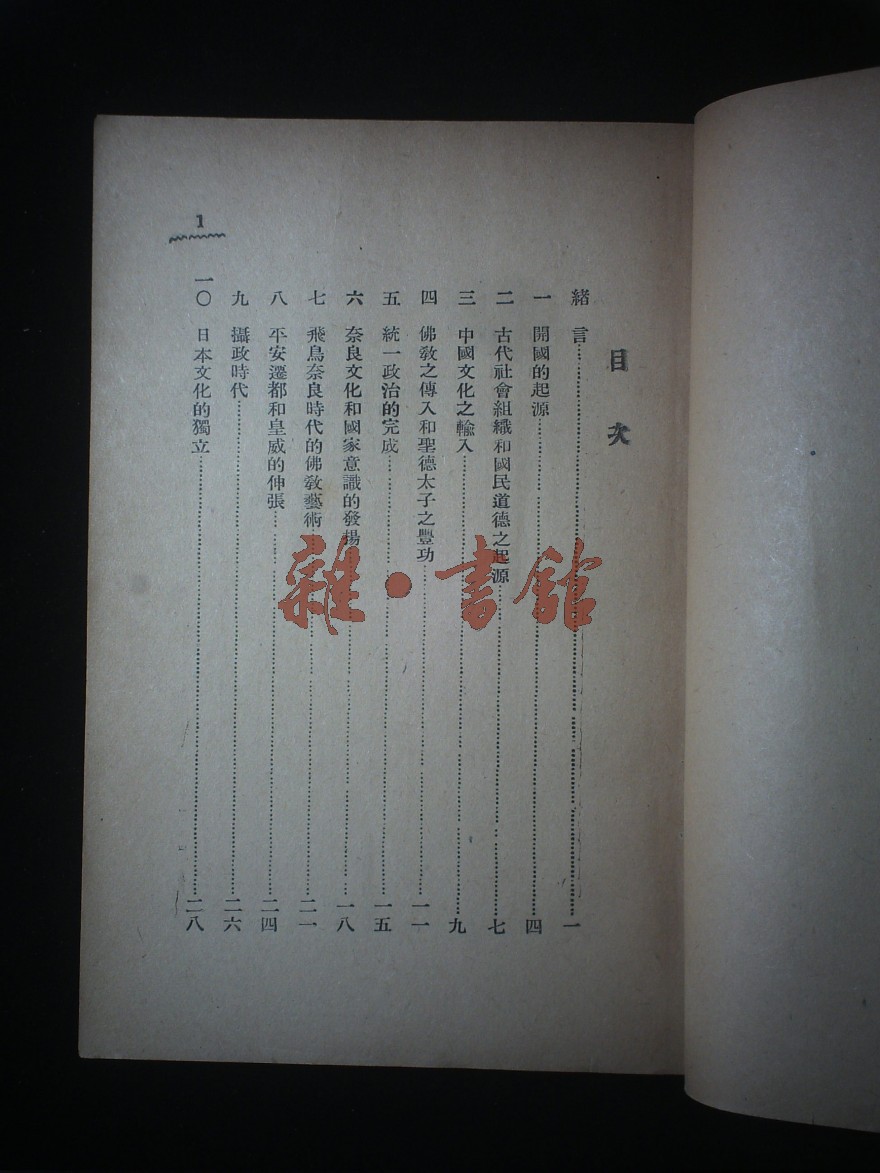 目次
緒言一
一 開國的起源四
二 古代社會組織和國民道德之起源七
三 中國文化之輸入九
四 佛教之傳入和聖德太子之豐功一一
五 統一政治的完成一五
六 奈良文化和國家意識的發揚一八
七 飛鳥奈良時代的佛教藝術二一
八 平安遷都和皇威的伸張二四
九 攝政時代二六
一〇 日本文化的獨立二八
1
雜·書館